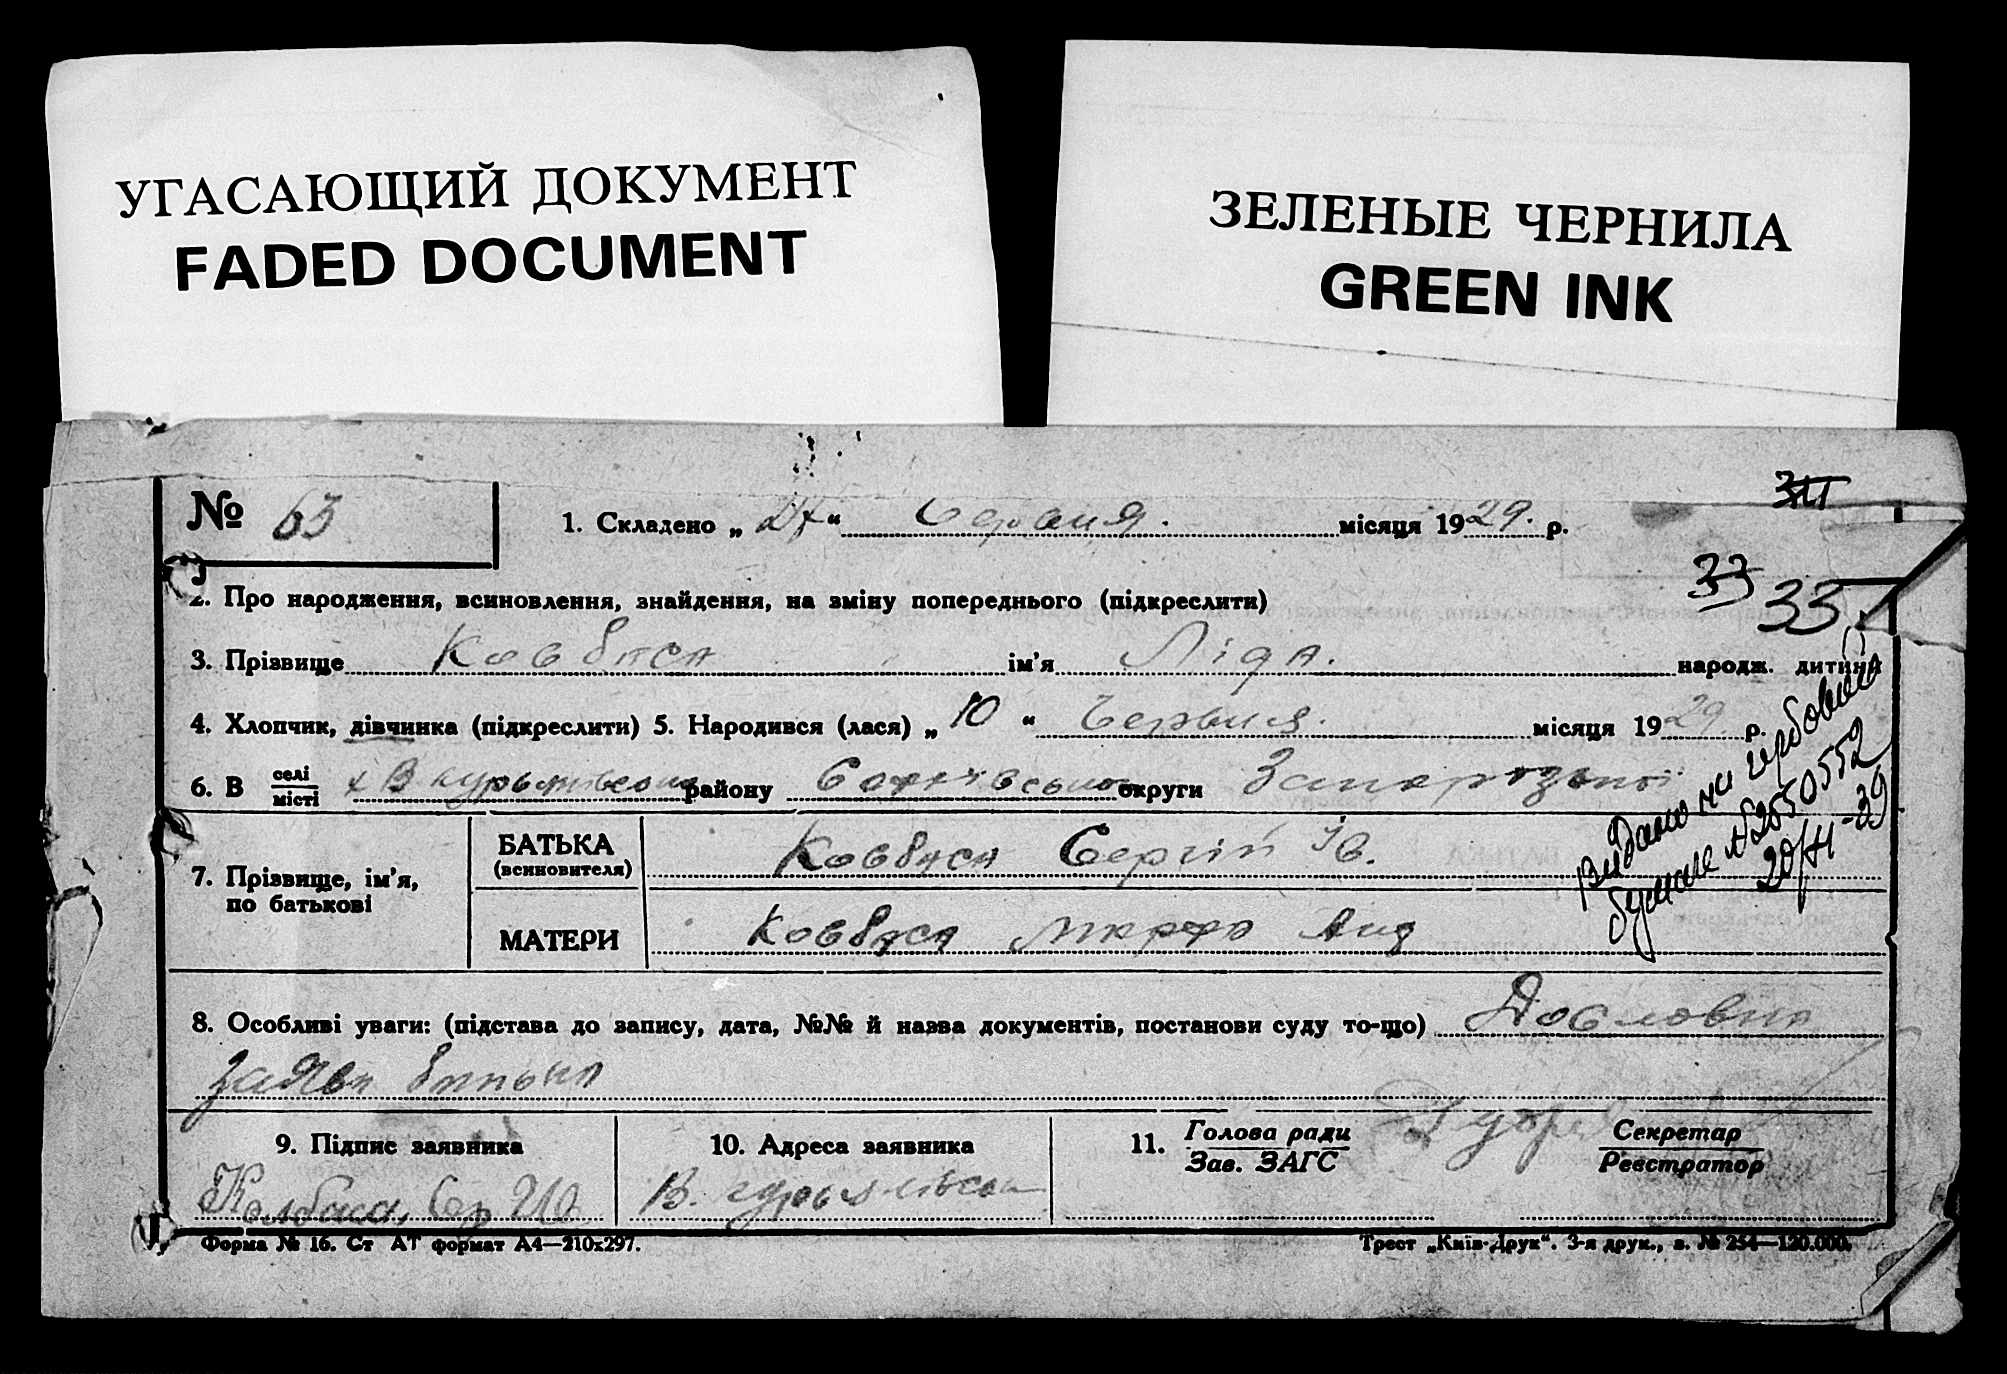 УГАСАЮЩИЙ ДОКУМЕНТ
FADED DOCUMENT
ЗЕЛЕНЫЕ ЧЕРНИЛА
GREEN INK
№ 63
1. Складено „ “ Червня місяця 1929. р.
33 33
2. Про народження, всиновлення, знайдення, на зміну попереднього (підкреслити)
3. Прізвище Ковбаса ім'я Ліда. народж. дитина
4. Хлопчик, дівчинка (підкреслити) 5. Народився (лася) „ 10 “ Червня. місяця 1929 р.
6. В селі
місті району округи Запорізької
7. Прізвище, ім'я,
по батькові
БАТЬКА
(всиновителя)
Ковбаса Сергій Ів.
МАТЕРИ
Ковбаса Марфа Анд
Видано на гербовій
бумаге № 2550552
20/XI-39
8. Особливі уваги: (підстава до запису, дата, №№ й назва документів, постанови суду то-що) Дословна
заява батька
9. Підпис заявника
10. Адреса заявника
11. Голова ради
Зав. ЗАГС
Секретар
Реєстратор
Форма № 16. Ст АТ формат А4—210х297.
Трест „Київ-Друк“. 3-я друк., з. № 254—120.000.